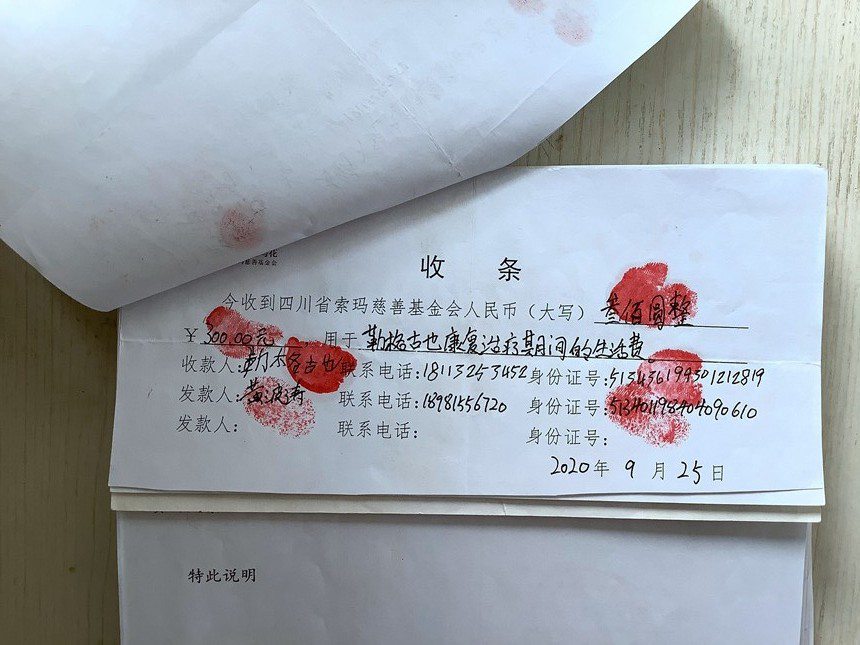 慈善基金会
收 条
今收到四川省索玛慈善基金会人民币（大写）叁佰圆整
￥300.00元 用于 勒格古也康复治疗期间的生活费
收款人：勒格古也 联系电话：18113253452 身份证号：513436199301212819
发款人：黄波 联系电话：18981556720 身份证号：513401198404090610
发款人： 联系电话： 身份证号：
2020年 9 月 25日
特此说明